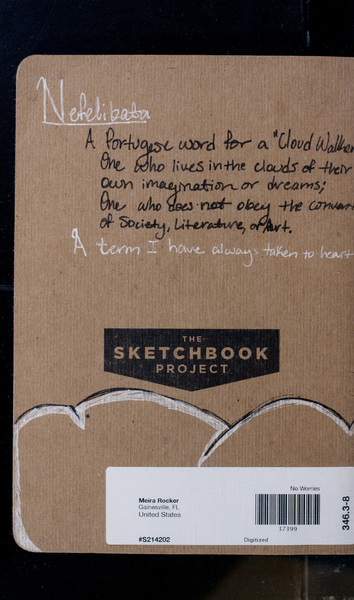 Nefelibata
A Portugese word for a "Cloud Walker
One who lives in the clouds of their
own imagination or dreams;
One who does not obey the conven
of Society, Literature, or Art.
A term I have always taken to heart
THE
SKETCHBOOK
PROJECT
No Worries
Meira Rocker
Gainesville, FL
United States
37199
346.3-8
#S214202
Digitized